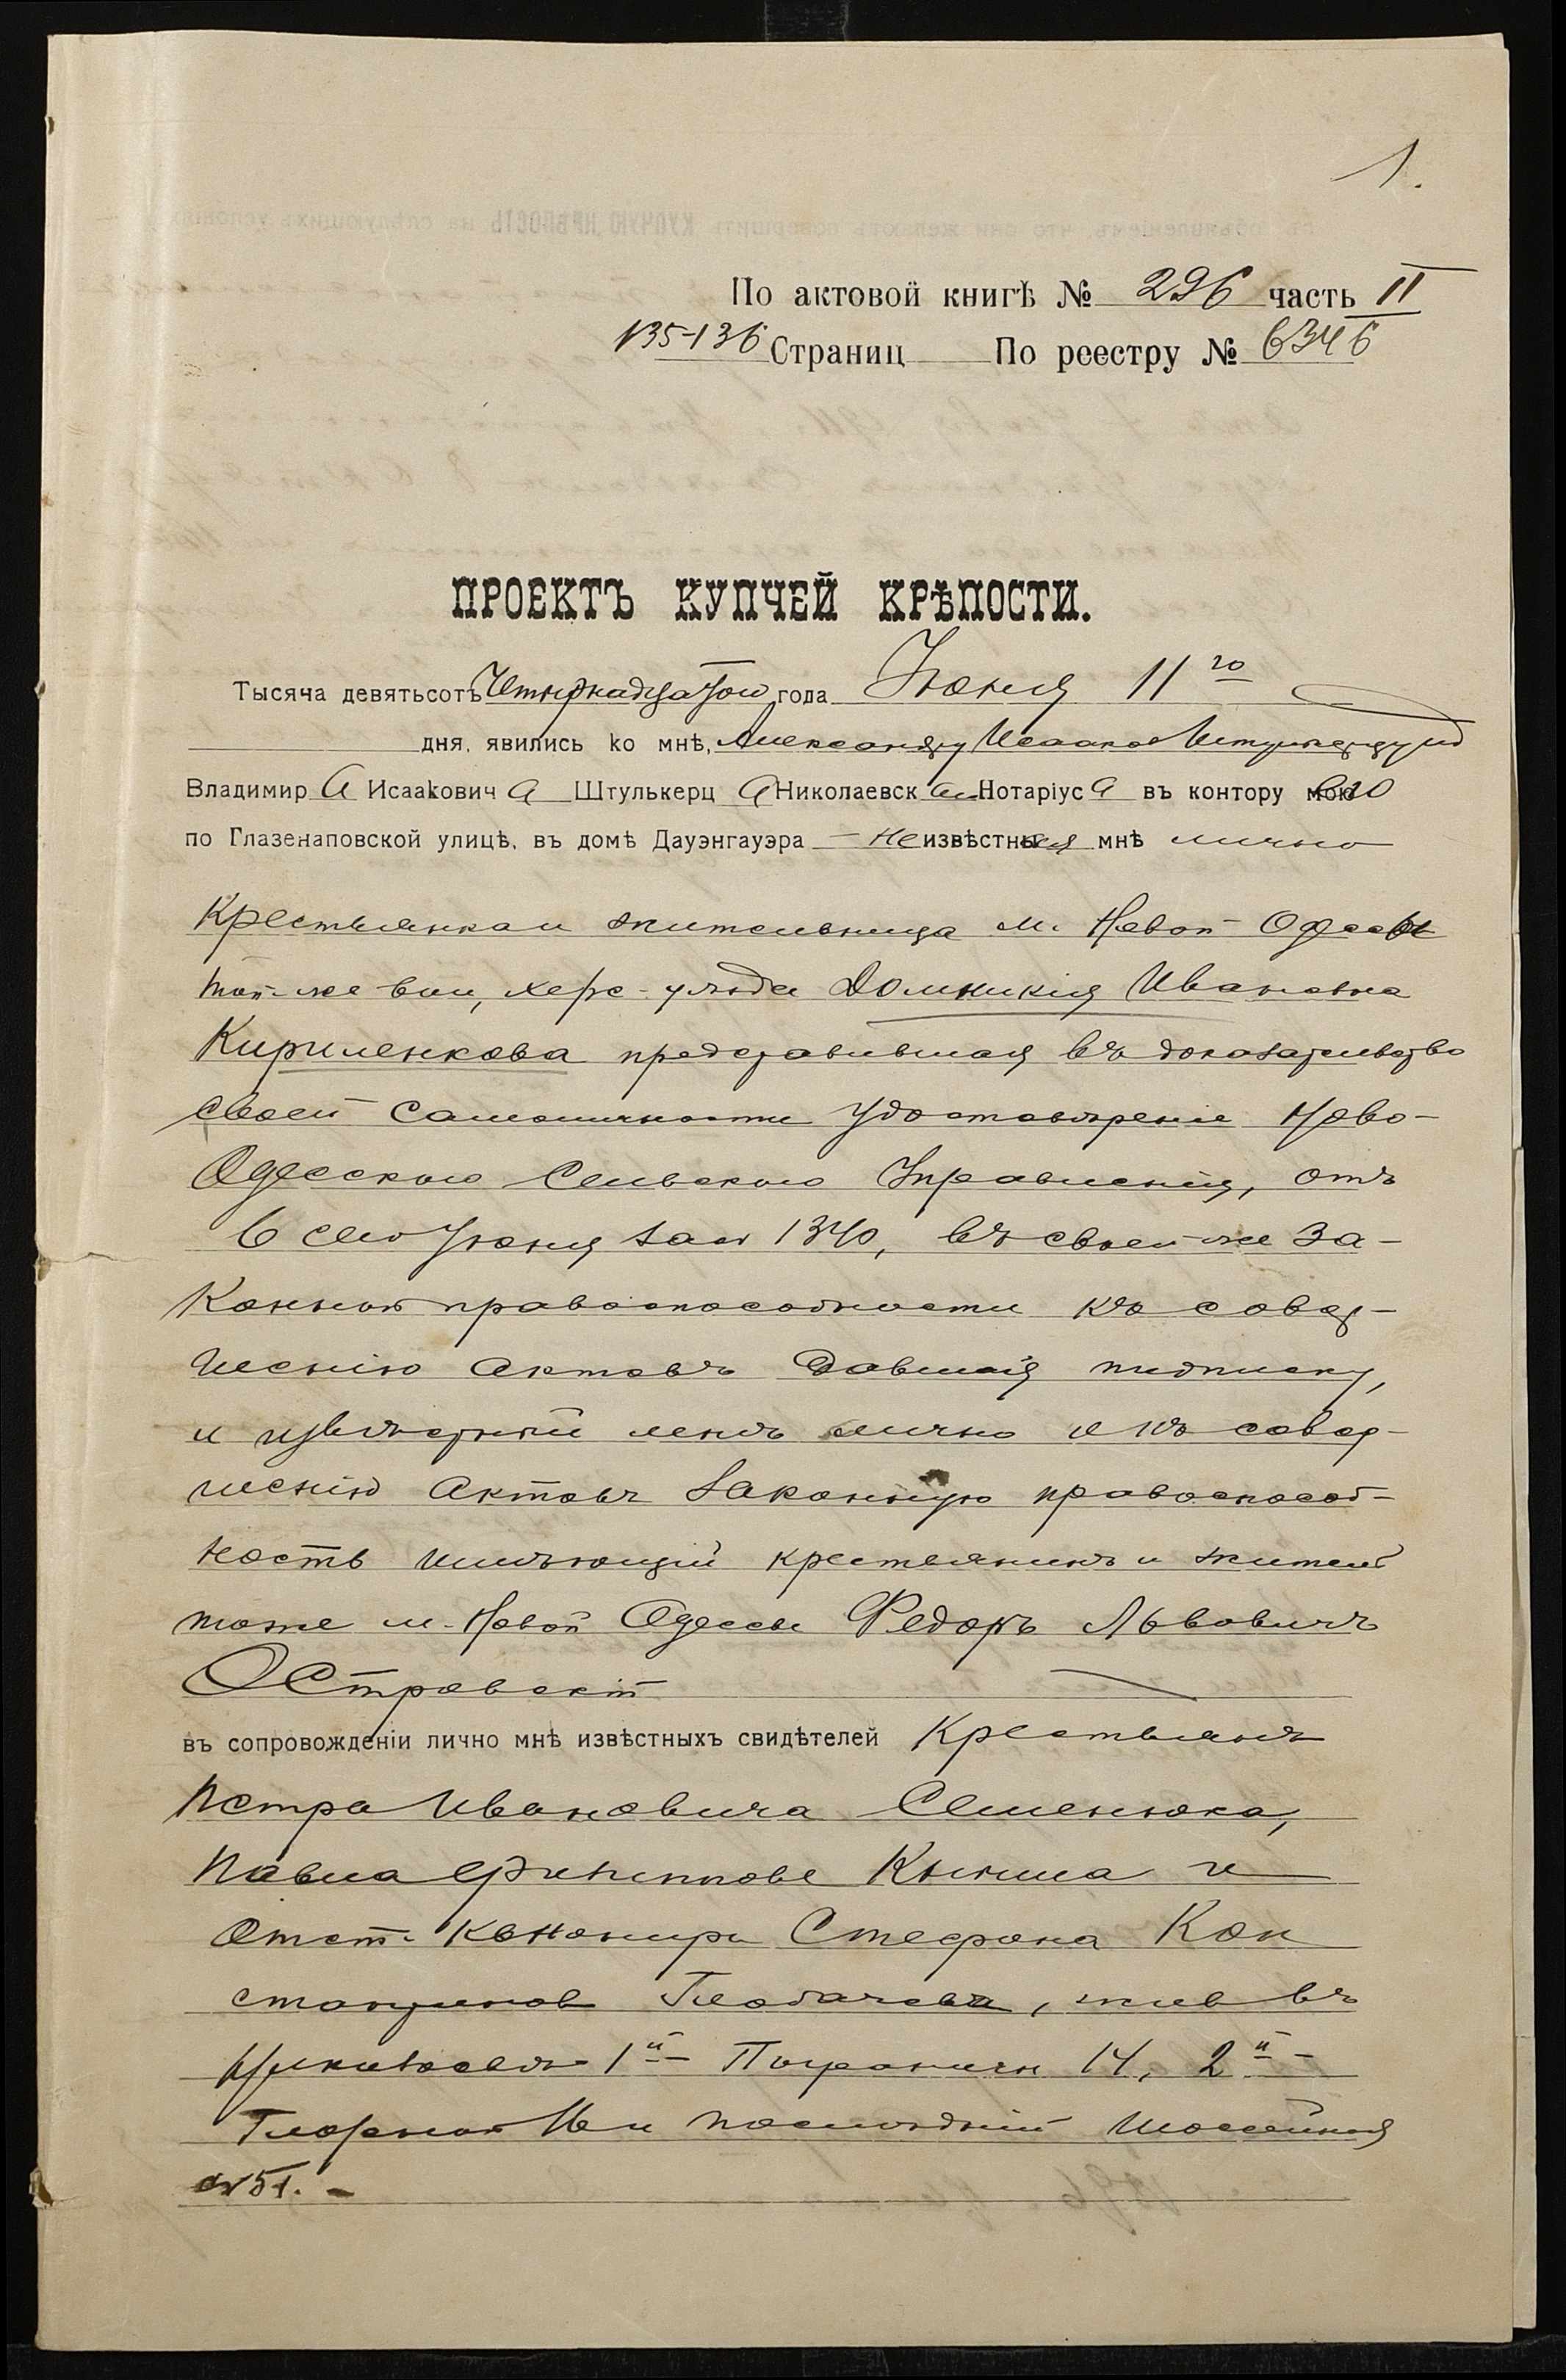 1.
По актовой книгѣ № 296 часть II
135-136 Страниц По реестру № 6346
ПРОЕКТЪ КУПЧЕЙ КРѢПОСТИ.
Тысяча девятьсотъ Четырнадцатого года Іюня 11го
дня, явились ко мнѣ, Александру Исааков
Владимир а Исаакович а Штулькерц а Николаевск Нотаріус а въ контору его
по Глазенаповской улицѣ, въ домѣ Дауэнгауэра — неизвѣстная мнѣ лично
Крестьянка и жительница м. Новой Одессы
той-же вол, Херс. уѣзда Домникія Ивановна
Кириленкова представившая въ доказательство
своей самоличности удостовѣреніе Ново-
Одесского Сельского Управленія, отъ
6 сего Іюня за № 1340, въ своей-же за-
конной правоспособности къ совер-
шенію актовъ давшая подписку,
и извѣстный мнѣ лично и къ совер-
шенію актовъ законную правоспособ-
ность имѣющій крестьянинъ и житель
тоже м. Новой Одессы Федоръ Львовичъ
Островскій
въ сопровожденіи лично мнѣ извѣстныхъ свидѣтелей Крестьянъ
Петра Ивановича Семенюка,
Павла Филиппова Кныша и
Отст. Канонира Стефана Кон
стантинов , жив въ
Николаевѣ 1й Пограничн 14, 2й
и послѣдній Шоссейная
№ 51. —